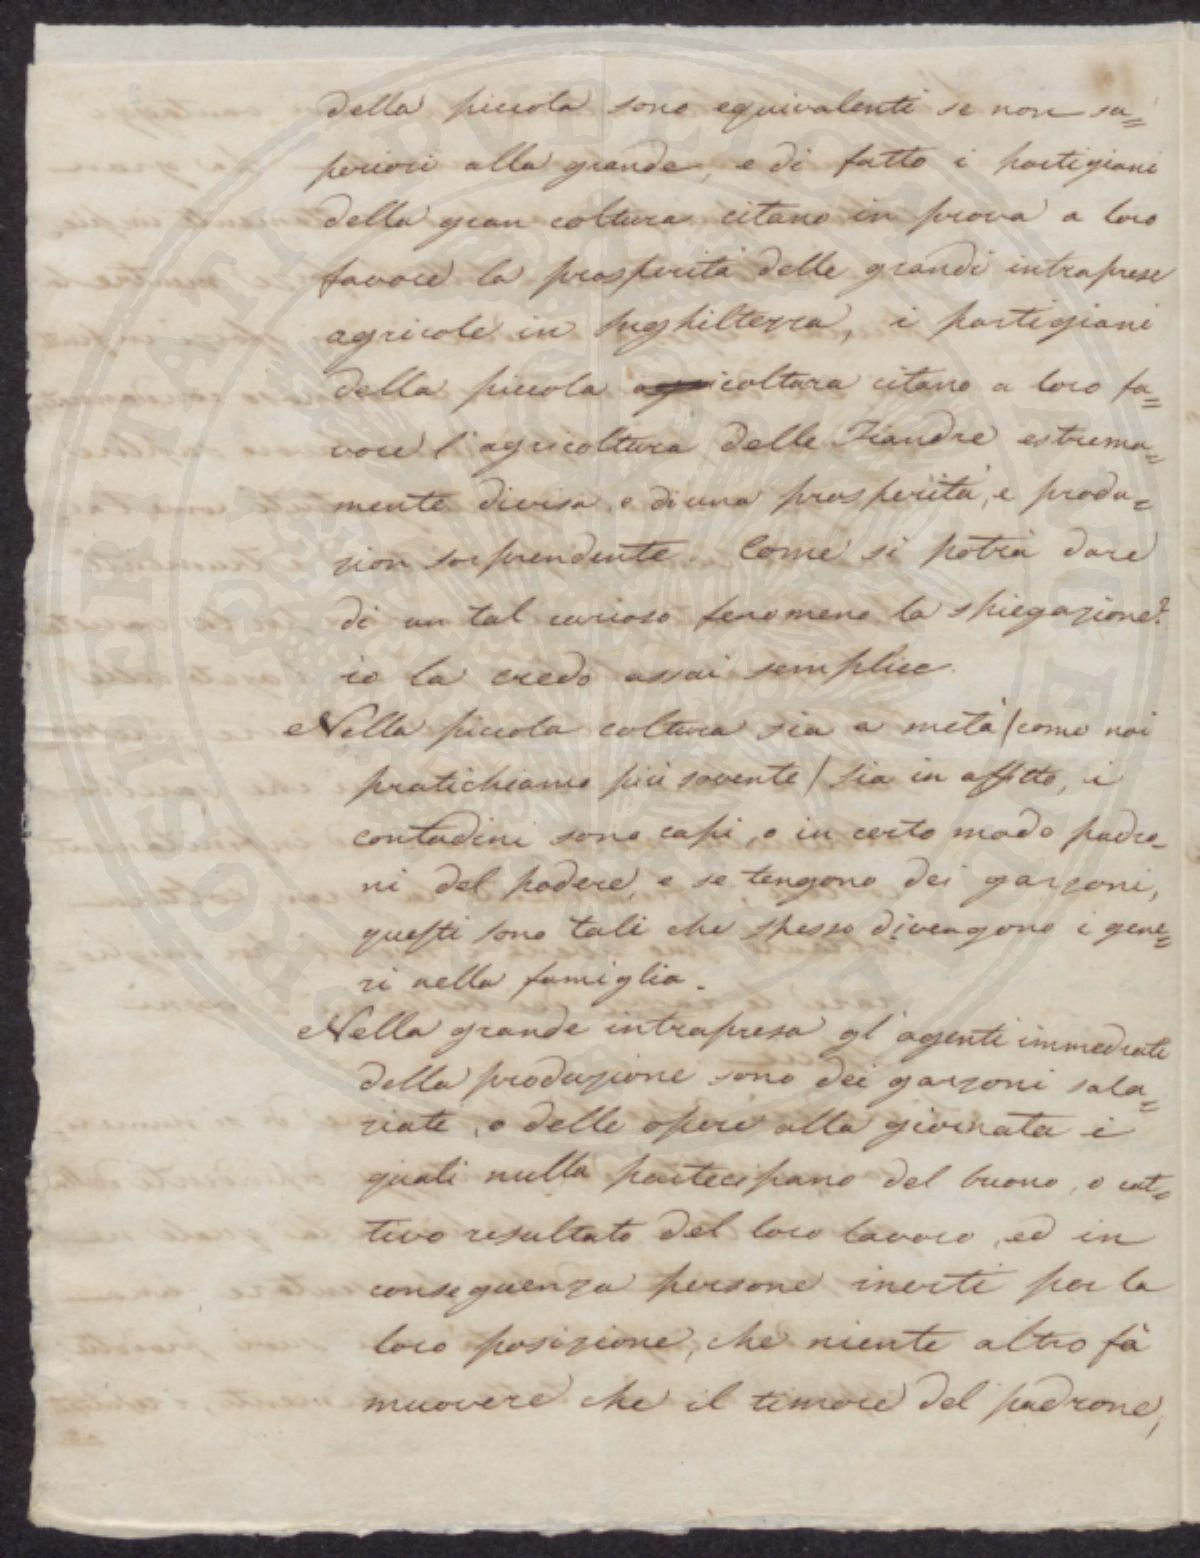 della piccola sono equivalenti se non su=
periori alla grande, e di fatto i partigiani
della gran coltura citano in prova a loro
favore la prosperità delle grandi intraprese
agricole in Inghilterra, i partigiani
della piccola agricoltura citano a loro fa=
vore l'agricoltura delle Fiandre estrema=
mente divisa e di una prosperità, e produ=
zion sorprendente. Come si potrà dare
di un tal curioso fenomeno la spiegazione?
io la credo assai semplice.
Nella piccola coltura sia a metà/come noi
pratichiamo più sovente/ sia in affitto, i
contadini sono capi, o in certo modo padro=
ni del podere, e se tengono dei garzoni,
questi sono tali che spesso divengono i gene=
ri nella famiglia.
Nella grande intrapresa gl'agenti immediati
della produzione sono dei garzoni sala=
riati, o delle opere alla giornata i
quali nulla partecipano del buono, o cat=
tivo resultato del loro lavoro, ed in
conseguenza persone inerti per la
loro posizione, che niente altro fà
muovere che il timore del padrone,